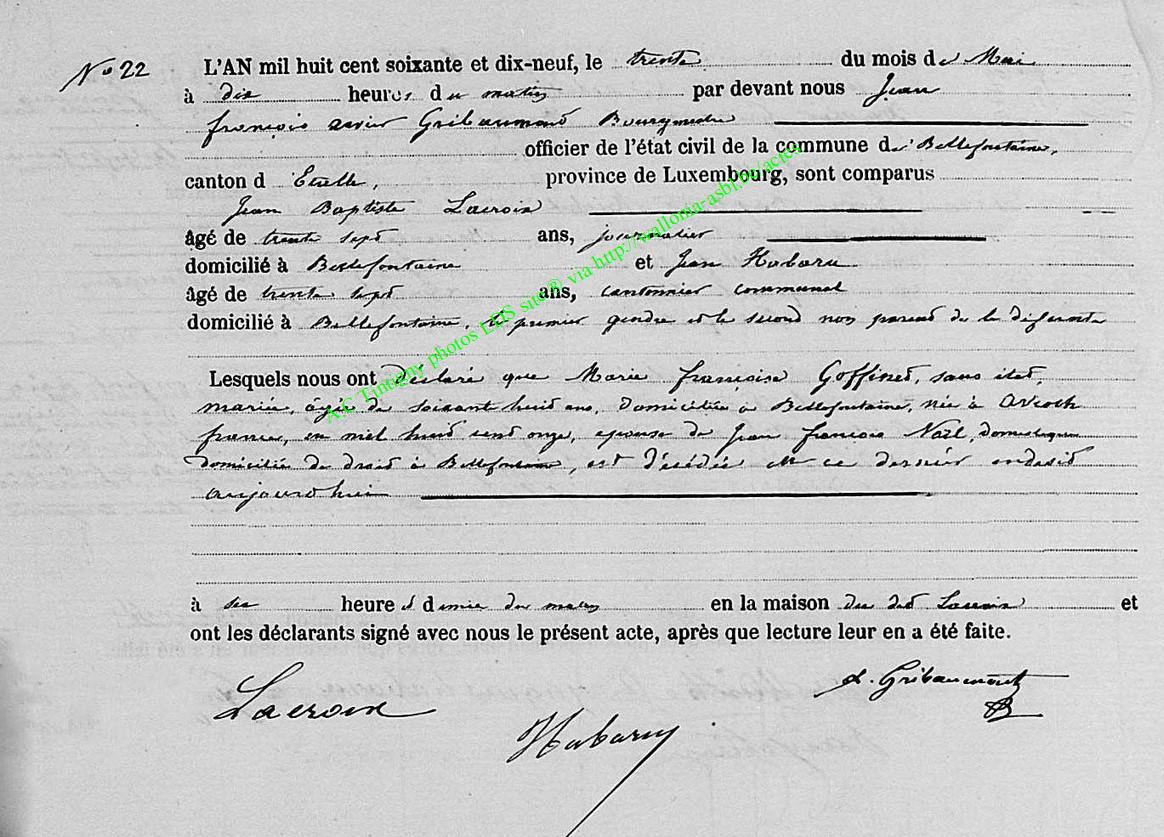 No 22
L'AN mil huit cent soixante et dix-neuf, le trente du mois de Mai
à dix heures du matin par devant nous Jean
françois xavier Gribaumont Bourgmestre
officier de l'état civil de la commune de Bellefontaine,
canton d'Etalle, province de Luxembourg, sont comparus
Jean Baptiste Lacroix
âgé de trente sept ans, journalier
domicilié à Bellefontaine et Jean Habaru
âgé de trente sept ans, cantonnier communal
domicilié à Bellefontaine, le premier gendre et le second non parent de la défunte
Lesquels nous ont déclaré que Marie françoise Goffinet, sans état,
mariée, âgée de soixante huit ans, domiciliée à Bellefontaine, née à
france, en mil huit cent onze, epouse de Jean françois Noël, domestique
domicilié de droit à Bellefontaine, est décédée en ce dernier endroit
aujourd'hui
à six heures et demie du matin en la maison du dit Lacroix et
ont les déclarants signé avec nous le présent acte, après que lecture leur en a été faite.
Lacroix
Habaru
Gribaumont
A.C Tintigny photos LDS site® via http://wallonia-asbl.be/actes